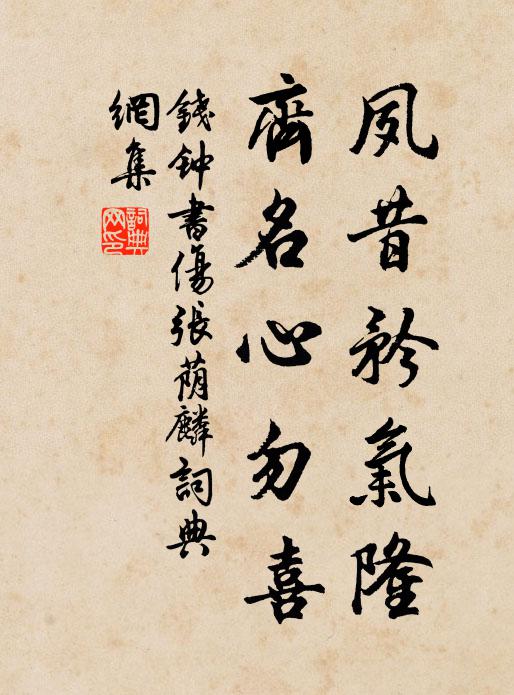 夙昔矜氣隆
齊名心勿喜
錢钟書傷張荫麟詞典
網集
詞典
网印